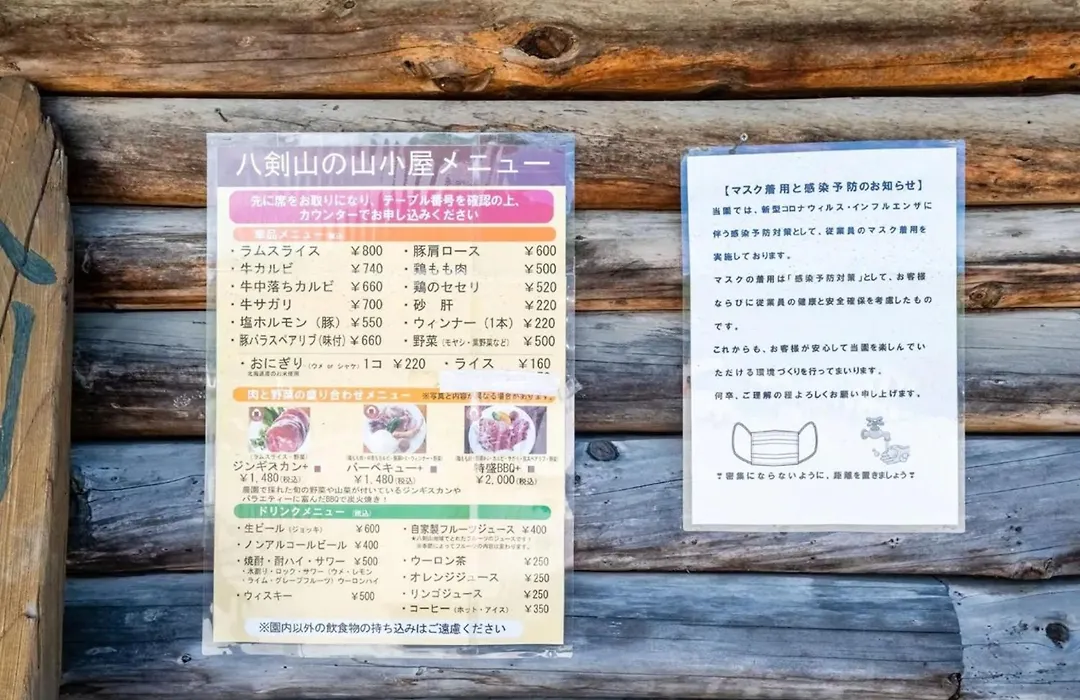 八剣山の山小屋メニュー
先に席をお取りになり、テーブル番号を確認の上、
カウンターでお申し込みください
単品メニュー
・ラムスライス ¥800 ・豚肩ロース ¥600
・牛カルビ ¥740 ・鶏もも肉 ¥500
・牛中落ちカルビ ¥660 ・鶏のセセリ ¥520
・牛サガリ ¥700 ・砂 肝 ¥220
・塩ホルモン（豚） ¥550 ・ウィンナー（1本） ¥220
・豚バラスペアリブ（味付） ¥660 ・野菜（モヤシ・葉野菜など） ¥500
・おにぎり（ウメ or シャケ）1コ ¥220 ・ライス ¥160
北海道産のお米使用
肉と野菜の盛り合わせメニュー ※写真と内容が異なる場合があります。
（ラムスライス・野菜）
ジンギスカン+ バーベキュー+ 特盛BBQ+
¥1,480（税込） ¥1,480（税込） ¥2,000（税込）
農園で採れた旬の野菜や山菜が付いているジンギスカンや
バラエティーに富んだBBQで炭火焼き！
ドリンクメニュー（税込）
・生ビール（ジョッキ） ¥600 ・自家製フルーツジュース ¥400
★八剣山地域でとれたフルーツのジュースです！
※季節によってフルーツの内容は変わります。
・ノンアルコールビール ¥400
・焼酎・酎ハイ・サワー ¥500 ・ウーロン茶 ¥250
・水割り・ロック・サワー（ウメ・レモン
・ライム・グレープフルーツ）ウーロンハイ
・オレンジジュース ¥250
・ウィスキー ¥500 ・リンゴジュース ¥250
・コーヒー（ホット・アイス） ¥350
※園内以外の飲食物の持ち込みはご遠慮ください
【マスク着用と感染予防のお知らせ】
当園では、新型コロナウィルス・インフルエンザに
伴う感染予防対策として、従業員のマスク着用を
実施しております。
マスクの着用は「感染予防対策」として、お客様
ならびに従業員の健康と安全確保を考慮したもの
です。
これからも、お客様が安心して当園を楽しんでい
ただける環境づくりを行ってまいります。
何卒、ご理解の程よろしくお願い申し上げます。
密集にならないように、距離を置きましょう